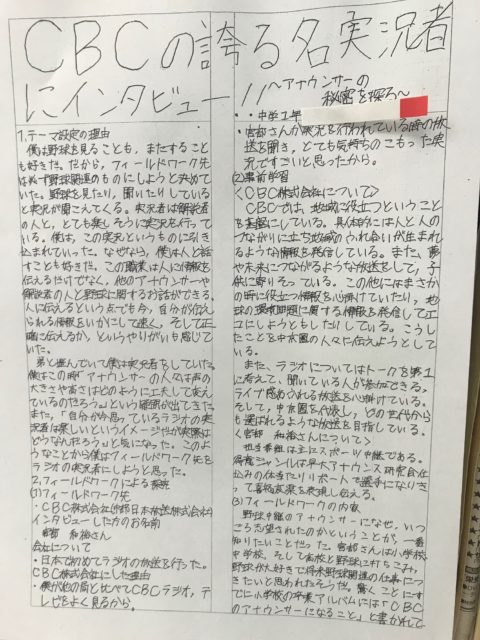 CBCの誇る名実況者
にインタビュー!!
〜アナウンサーの
秘密を探ろ〜
・中学1年
1.テーマ設定の理由
僕は野球を見ることも、またすること
も好きだ。だから、フィールドワーク先
は必ず野球関連のものにしようと決めて
いた。野球を見たり、聞いたりしている
と実況が聞こえてくる。実況者は解説者
の人と、とても楽しそうに実況を行って
いる。僕は、この実況というものに引き
込まれていった。なぜなら、僕は人と話
すことも好きだ。この職業は人に情報を
伝えるだけでなく、他のアナウンサーや
解説者の人と野球に関するお話ができる。
人に伝えるという点でも今、自分が伝え
られる情報をいかにして速く、そして正
確に伝えるか、というやりがいも感じて
いた。
弟と遊んでいて僕は実況者をしていた。
僕はこの時「アナウンサーの人々は声の
大きさや高さはどのように工夫して変えて
いるのだろう。」という疑問が出てきた。
また、「自分が今思っているラジオの実
況者は楽しいというイメージだが実際は
どうなんだろう。」と気になった。このよ
うなことから僕はフィールドワーク先を
ラジオの実況者にしようと思った。
2.フィールドワークによる探究
(1)フィールドワーク先
・CBC株式会社
インタビューした方のお名前
会社について
・日本で初めてラジオの放送を行った。
CBC株式会社にした理由
・僕が他の局と比べてCBCラジオ、テ
レビをよく見るから。
・宮部さんが実況を行われている時の放
送を聞き、とても気持ちのこもった実
況ですごいと思ったから。
(2)事前学習
<CBC株式会社について>
CBCでは、地域に役立つということ
を基盤にしている。具体的には人と人の
つながりに立ち地域のふれ合いが生まれ
るような情報を発信している。また、夢
や未来につながるような放送をして、子
供に寄りそっている。この他にはまさか
の時に役立つ情報を心掛けていたり、地
球の環境問題に関する情報を発信してエ
コにしようともしたりしている。こうし
たことを中京圏の人々に伝えようとして
いる。
また、ラジオについてはトークを第1
に考えて、聞いている人が参加できる、
ライブ感あふれる放送を心掛けている。
そして、中京圏を代表し、どの世代から
も選ばれるような放送を目指している。
<宮部 和裕さんについて>
担当番組は主にスポーツ中継である。
得意ジャンルは早大アナウンス研究会仕
込みの体当たりリポートで選手になりき
って喜怒哀楽を表現し伝える。
(3)フィールドワークの内容
野球中継のアナウンサーになぜ、いつ
ごろ志望されたのかということが、一番
知りたいことだった。宮部さんは小学校、
中学校、そして高校と野球に打ちこみ、
野球が大好きで将来野球関連の仕事につ
きたいと思われたそうだ。驚くことにす
でに小学校の卒業アルバムには「CBC
のアナウンサーになること」と書かれて